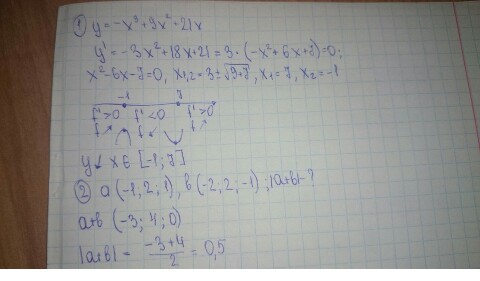 ① y = -x³ + 9x² + 21x
y' = -3x² + 18x + 21 = 3 · (-x² + 6x + 7) = 0;
x² - 6x - 7 = 0, x1,2 = 3 ± √9+7; x1 = 7, x2 = -1
-1 7
f' > 0 f' < 0 f' > 0
f ↗ f ↙ f ↗
y ↙ x ∈ [-1; 7]
② a (-1, 2; 1), b (-2; 2; -1); |a+b| - ?
a+b (-3; 4; 0)
|a+b| = -3+4 / 2 = 0,5